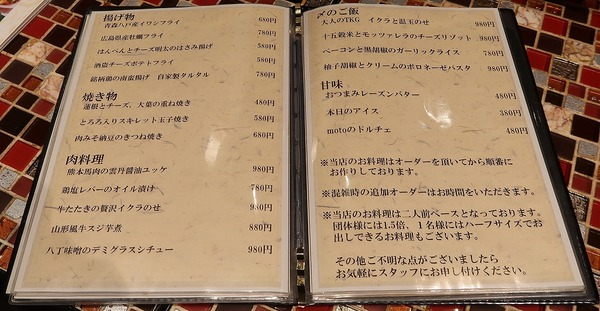 揚げ物
青森八戸産イワシフライ 680円
広島県産牡蠣フライ 780円
はんぺんとチーズ明太のはさみ揚げ 580円
酒盗チーズポテトフライ 580円
銘柄鶏の南蛮揚げ 自家製タルタル 780円
焼き物
蓮根とチーズ、大葉の重ね焼き 480円
とろろ入りスキレット玉子焼き 580円
肉みそ納豆のきつね焼き 680円
肉料理
熊本馬肉の雲丹醤油ユッケ 980円
鶏塩レバーのオイル漬け 780円
牛たたきの贅沢イクラのせ 980円
山形風牛スジ芋煮 880円
八丁味噌のデミグラスシチュー 980円
〆のご飯
大人のTKG イクラと温玉のせ 980円
十五穀米とモッツァレラのチーズリゾット 980円
ベーコンと黒胡椒のガーリックライス 780円
柚子胡椒とクリームのボロネーゼパスタ 980円
甘味
おつまみレーズンバター 480円
本日のアイス 380円
motoのドルチェ 480円
※当店のお料理はオーダーを頂いてから順番に
お作りしております。
※混雑時の追加オーダーはお時間をいただきます。
※当店のお料理は二人前ベースとなっております。
団体様には1.5倍、1名様にはハーフサイズでお
出しできるお料理もございます。
その他ご不明な点がございましたら
お気軽にスタッフにお申し付けください。